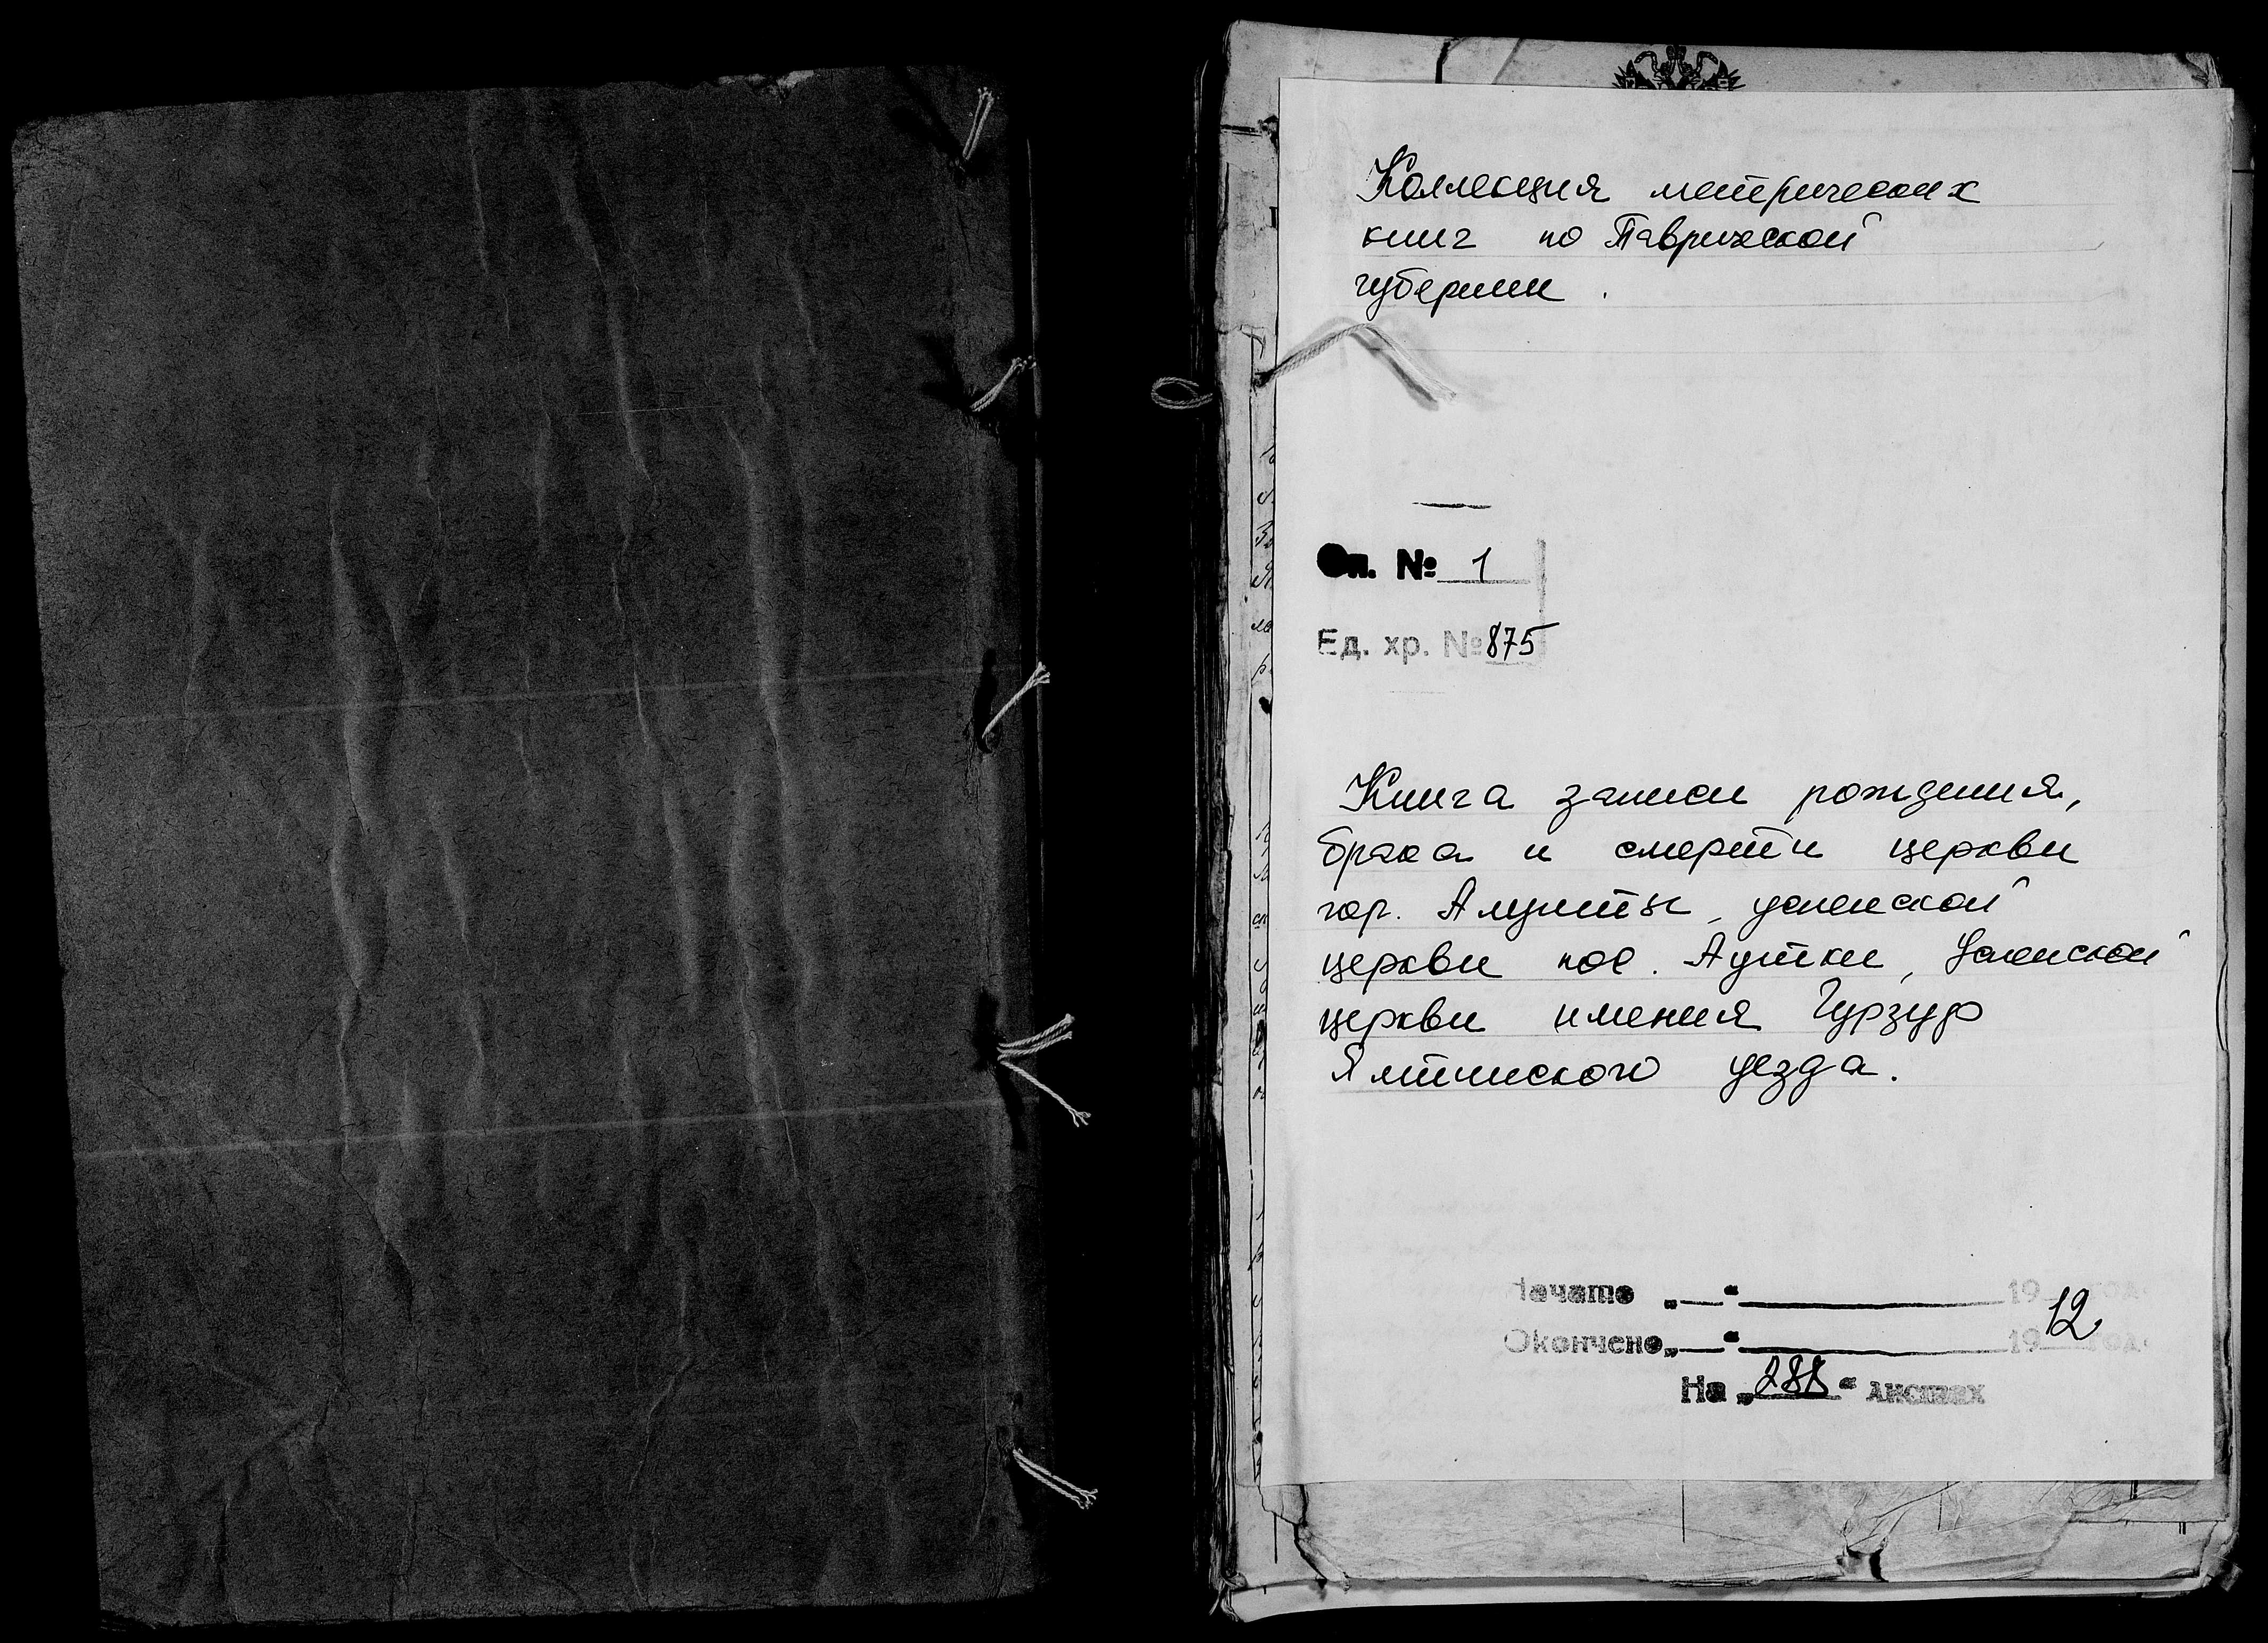 Коллекция метрических
книг по Таврической
губернии.
Оп. № 1
Ед. хр. № 875
Книга записи рождения,
брака и смерти церкви
гор. Алушты, успенской
церкви пос. Аутки, Успенской
церкви имения Гурзуф
Ялтинского уезда.
Начато „—“ 19 год
Окончено „—“ 1912 год
На „288“ листах